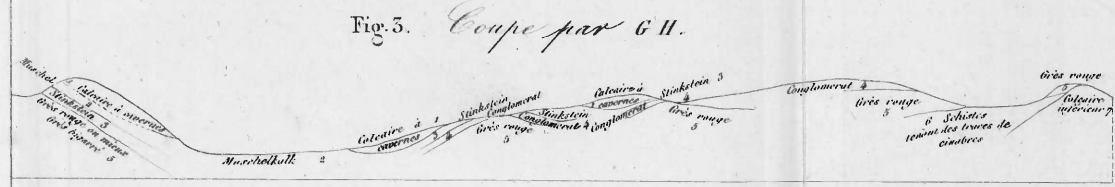 Fig. 3. Coupe par G H.
Muschel 2
Calcaire à cavernes
Stinkstein 3
Grès rouge ou mieux
Grès bigarré 5
Muschelkalk 2
Calcaire à 1
cavernes 3 4
Stinkstein
Conglomerat
Grès rouge
5
Stinkstein
Conglomerat 4
Calcaire à
1 cavernes
Conglomerat
Stinkstein 3
4
Grès rouge
5
Conglomerat 4
Grès rouge
5
6 Schistes
tenant des traces de
cinabres
Grès rouge
5
Calcaire
inférieur 7